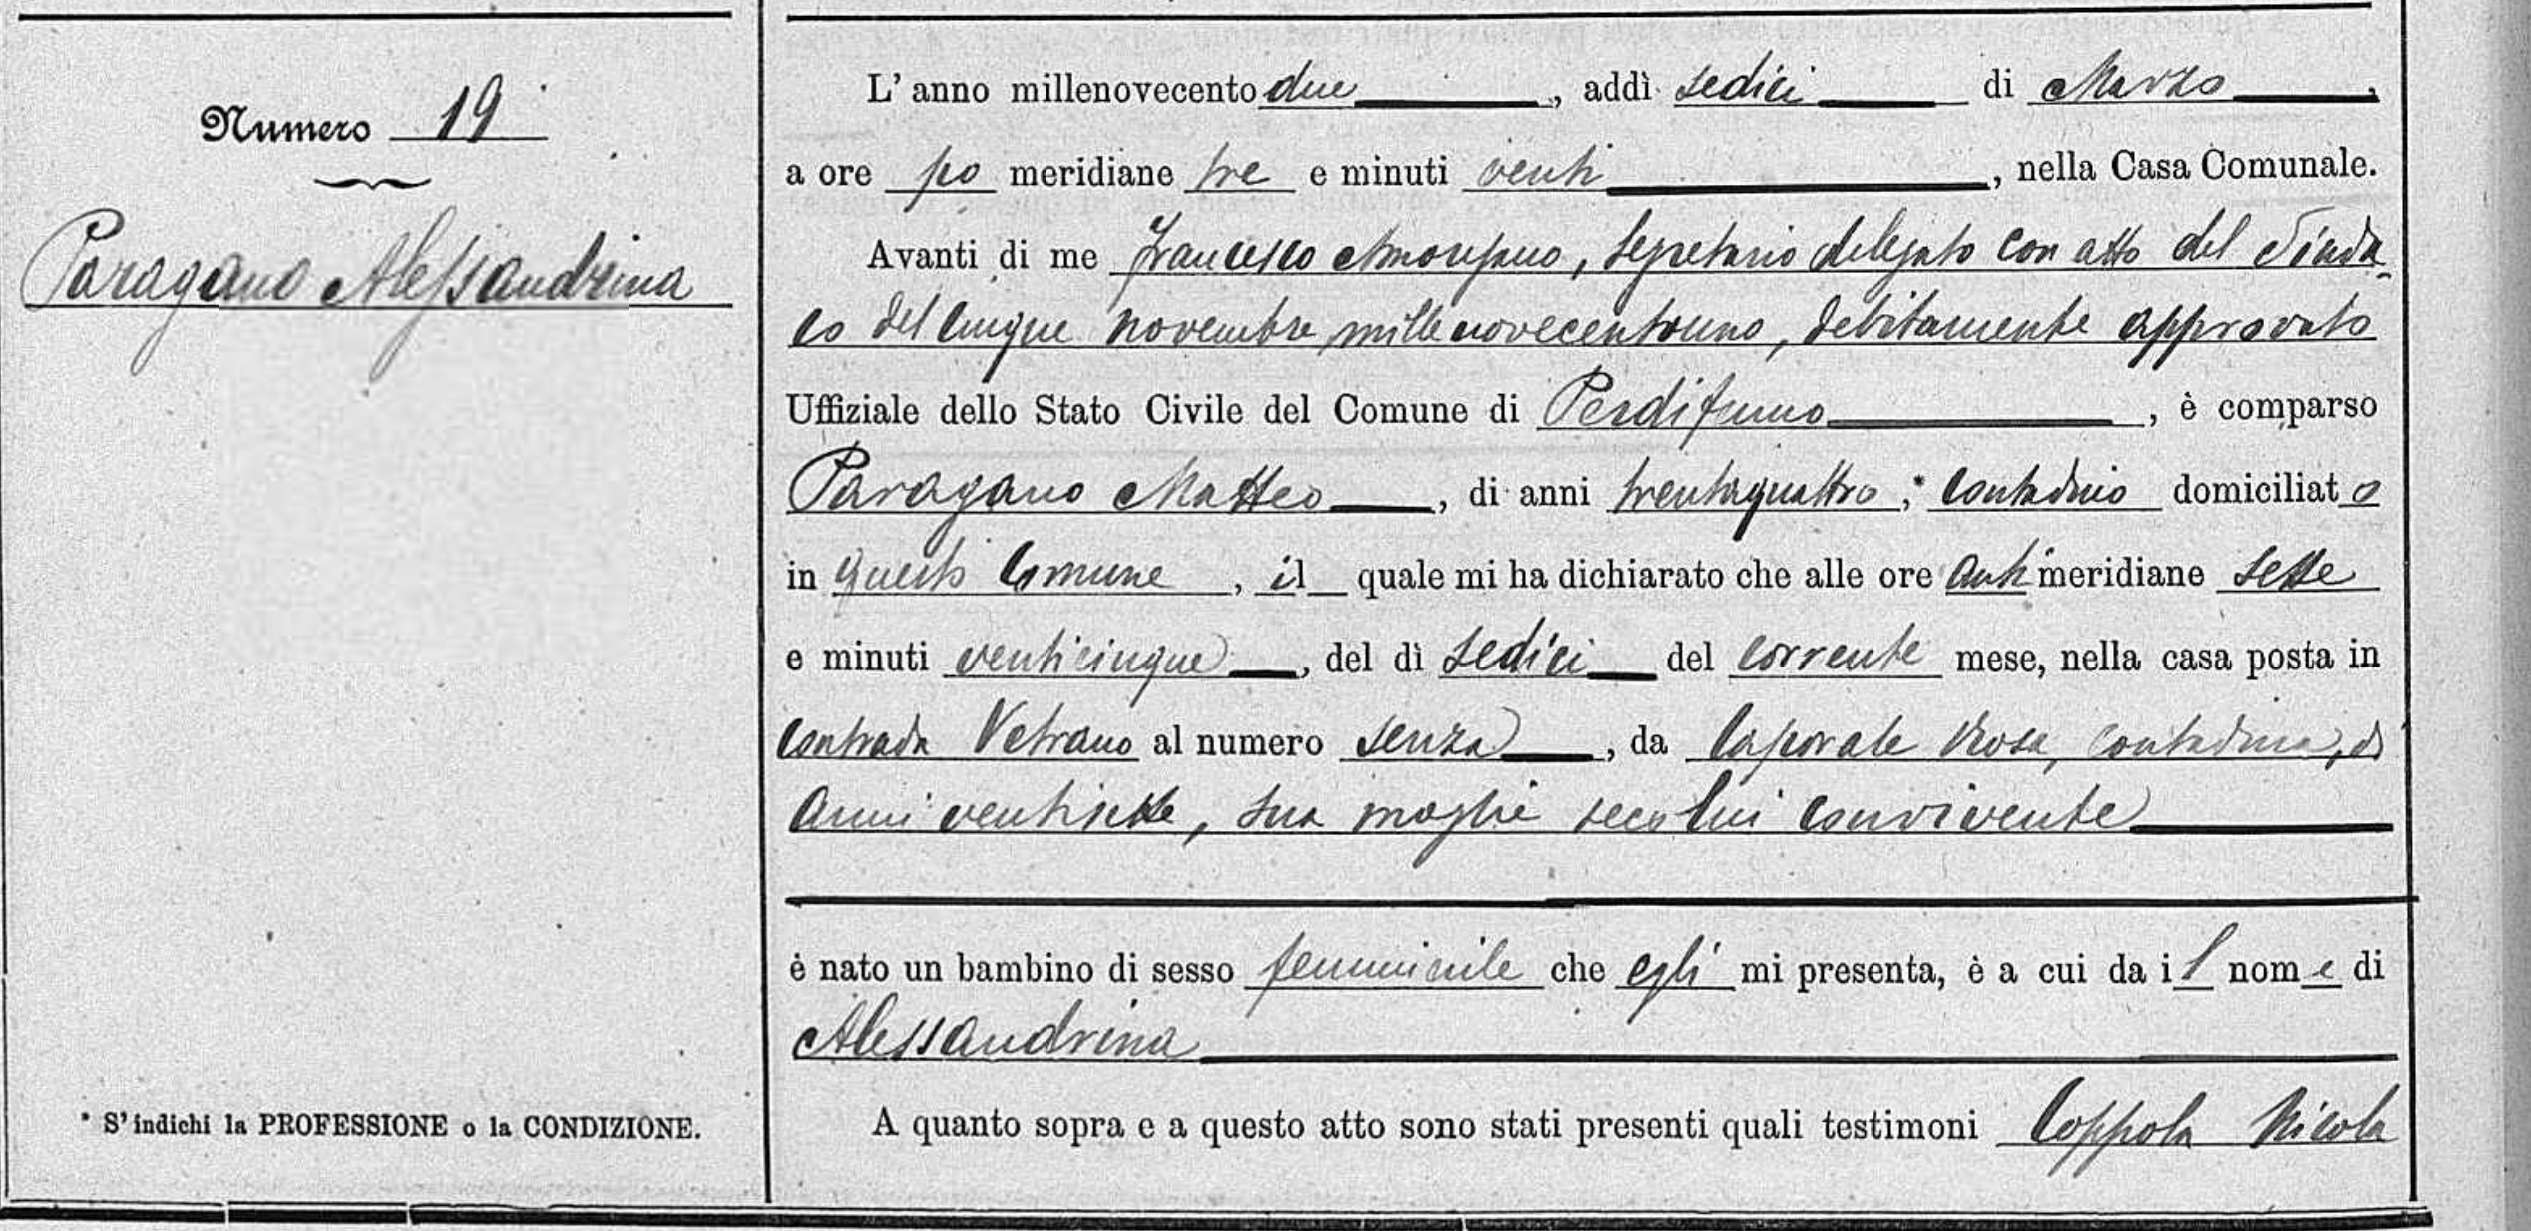 Numero 19
Paragano Alessandrina
* S'indichi la PROFESSIONE o la CONDIZIONE.
L'anno millenovecento due, addì sedici di Marzo,
a ore po meridiane tre e minuti venti, nella Casa Comunale.
Avanti di me Francesco, Segretario delegato con atto del Sinda-
co del cinque novembre millenovecentouno, debitamente approvato
Uffiziale dello Stato Civile del Comune di Perdifumo, è comparso
Paragano Matteo, di anni trentaquattro,* contadino domiciliato
in questo Comune, il quale mi ha dichiarato che alle ore anti meridiane sette
e minuti venticinque, del dì sedici del corrente mese, nella casa posta in
Contrada Vetrano al numero senza, da Caporale Rosa, contadina, di
anni ventisette, sua moglie seco lui convivente
è nato un bambino di sesso femminile che egli mi presenta, è a cui da il nome di
Alessandrina
A quanto sopra e a questo atto sono stati presenti quali testimoni Coppola Nicola